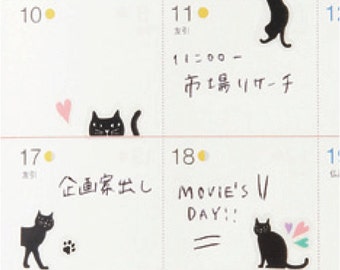 10 11 12
友引
11:00ー
市場リサーチ
17 18 19
友引 仏
企画案出し
MOVIE'S
DAY!!